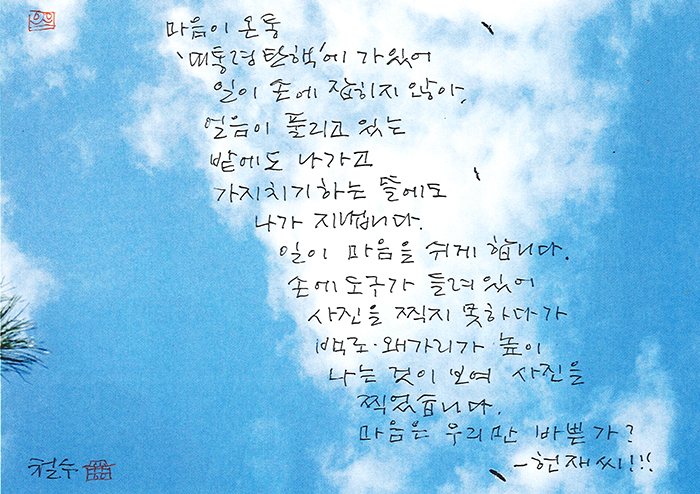 마음이 온통
'대통령 탄핵'에 가있어
일이 손에 잡히지 않아,
얼음이 풀리고 있는
밭에도 나가고
가지치기하는 뜰에도
나가 지냅니다.
일이 마음을 쉬게 합니다.
손에 도구가 들려있어
사진을 찍지 못하다가
백로·왜가리가 높이
나는 것이 보여 사진을
찍었습니다.
마음은 우리만 바쁜가?
-헌재씨!!!
철수